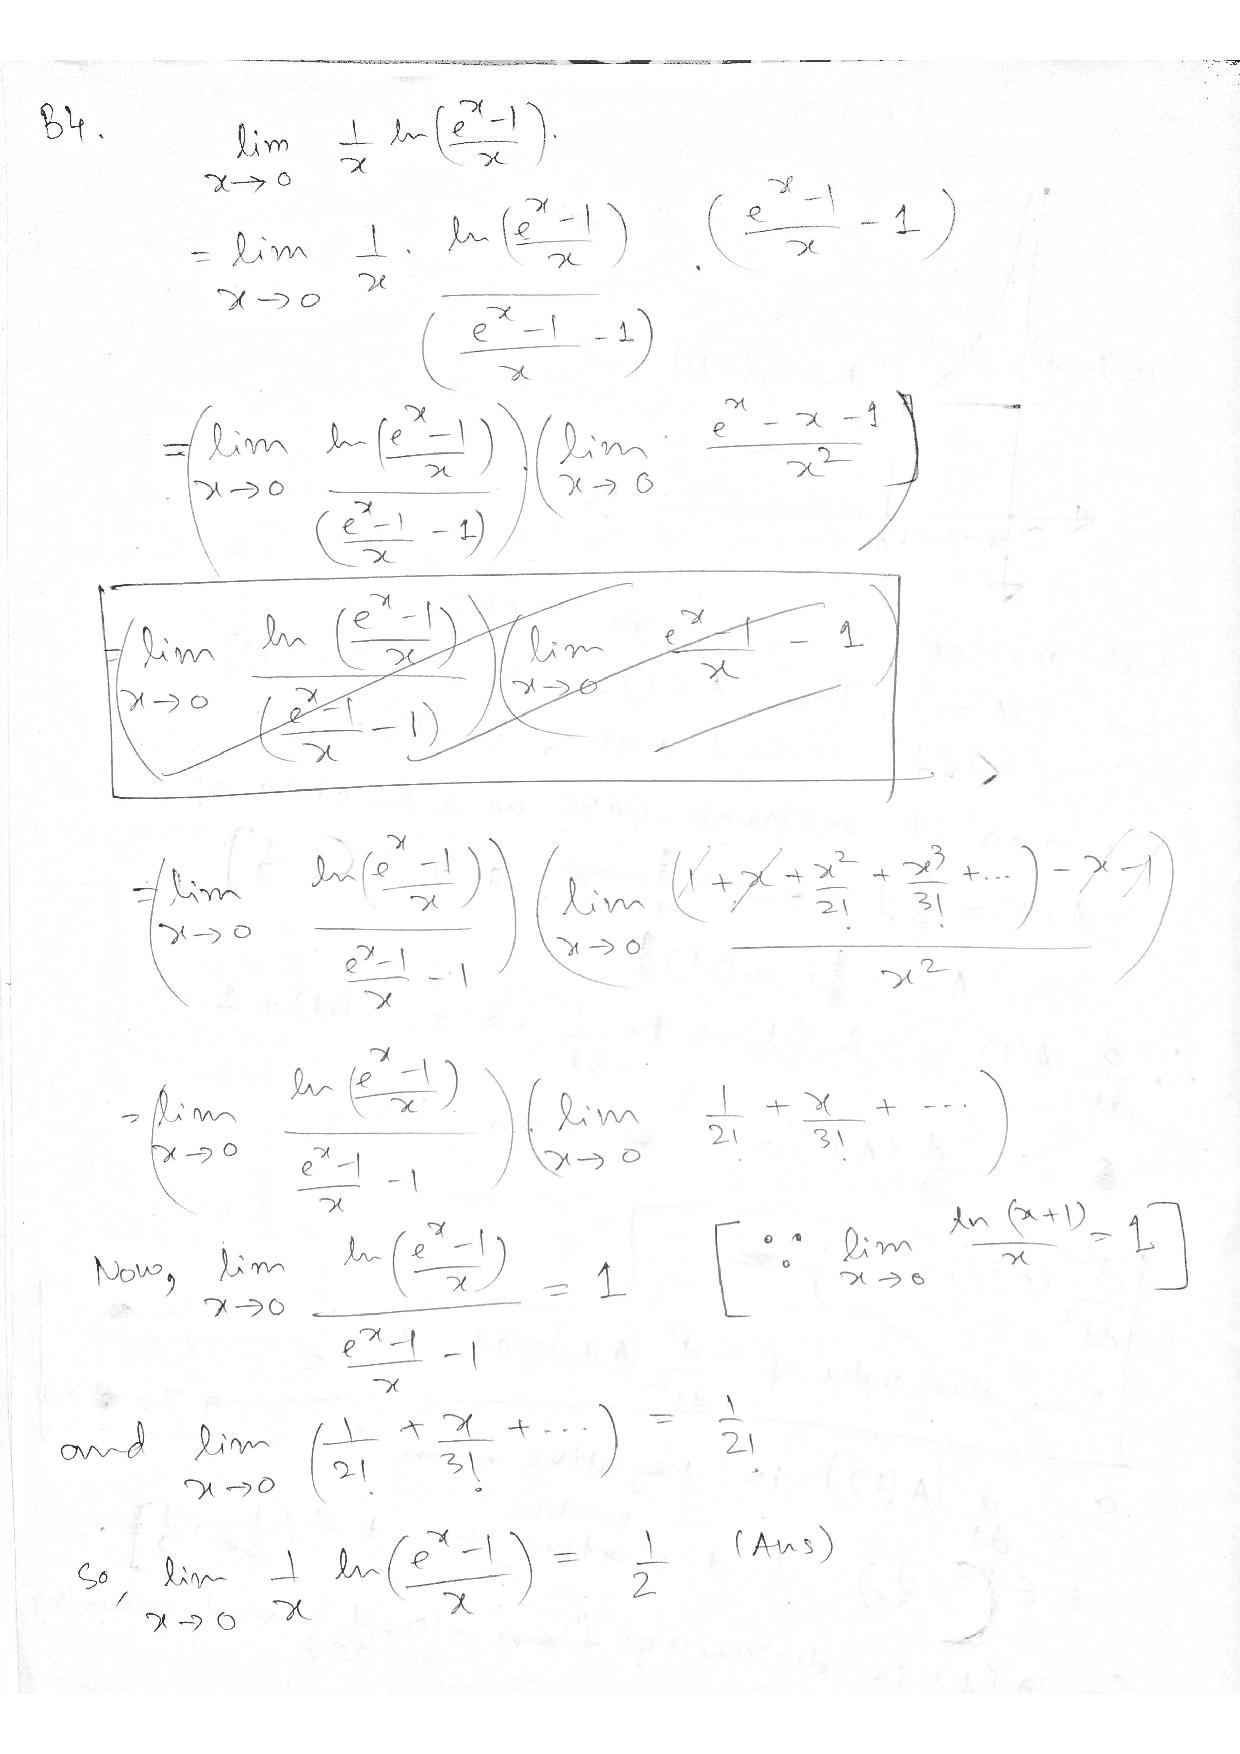 B4. lim_{x→0} 1/x ln((e^x-1)/x).
= lim_{x→0} 1/x . ln((e^x-1)/x) / ((e^x-1)/x - 1) . ((e^x-1)/x - 1)
= (lim_{x→0} ln((e^x-1)/x) / ((e^x-1)/x - 1)) . (lim_{x→0} (e^x - x - 1)/x^2)
= (lim_{x→0} ln((e^x-1)/x) / ((e^x-1)/x - 1)) (lim_{x→0} (e^x-1)/x - 1)
= (lim_{x→0} ln((e^x-1)/x) / ((e^x-1)/x - 1)) (lim_{x→0} ((1 + x + x^2/2! + x^3/3! + ...) - x - 1) / x^2)
= (lim_{x→0} ln((e^x-1)/x) / ((e^x-1)/x - 1)) (lim_{x→0} 1/2! + x/3! + ...)
Now, lim_{x→0} ln((e^x-1)/x) / ((e^x-1)/x - 1) = 1 [∵ lim_{x→0} ln(x+1)/x = 1]
and lim_{x→0} (1/2! + x/3! + ...) = 1/2!
So, lim_{x→0} 1/x ln((e^x-1)/x) = 1/2 (Ans)